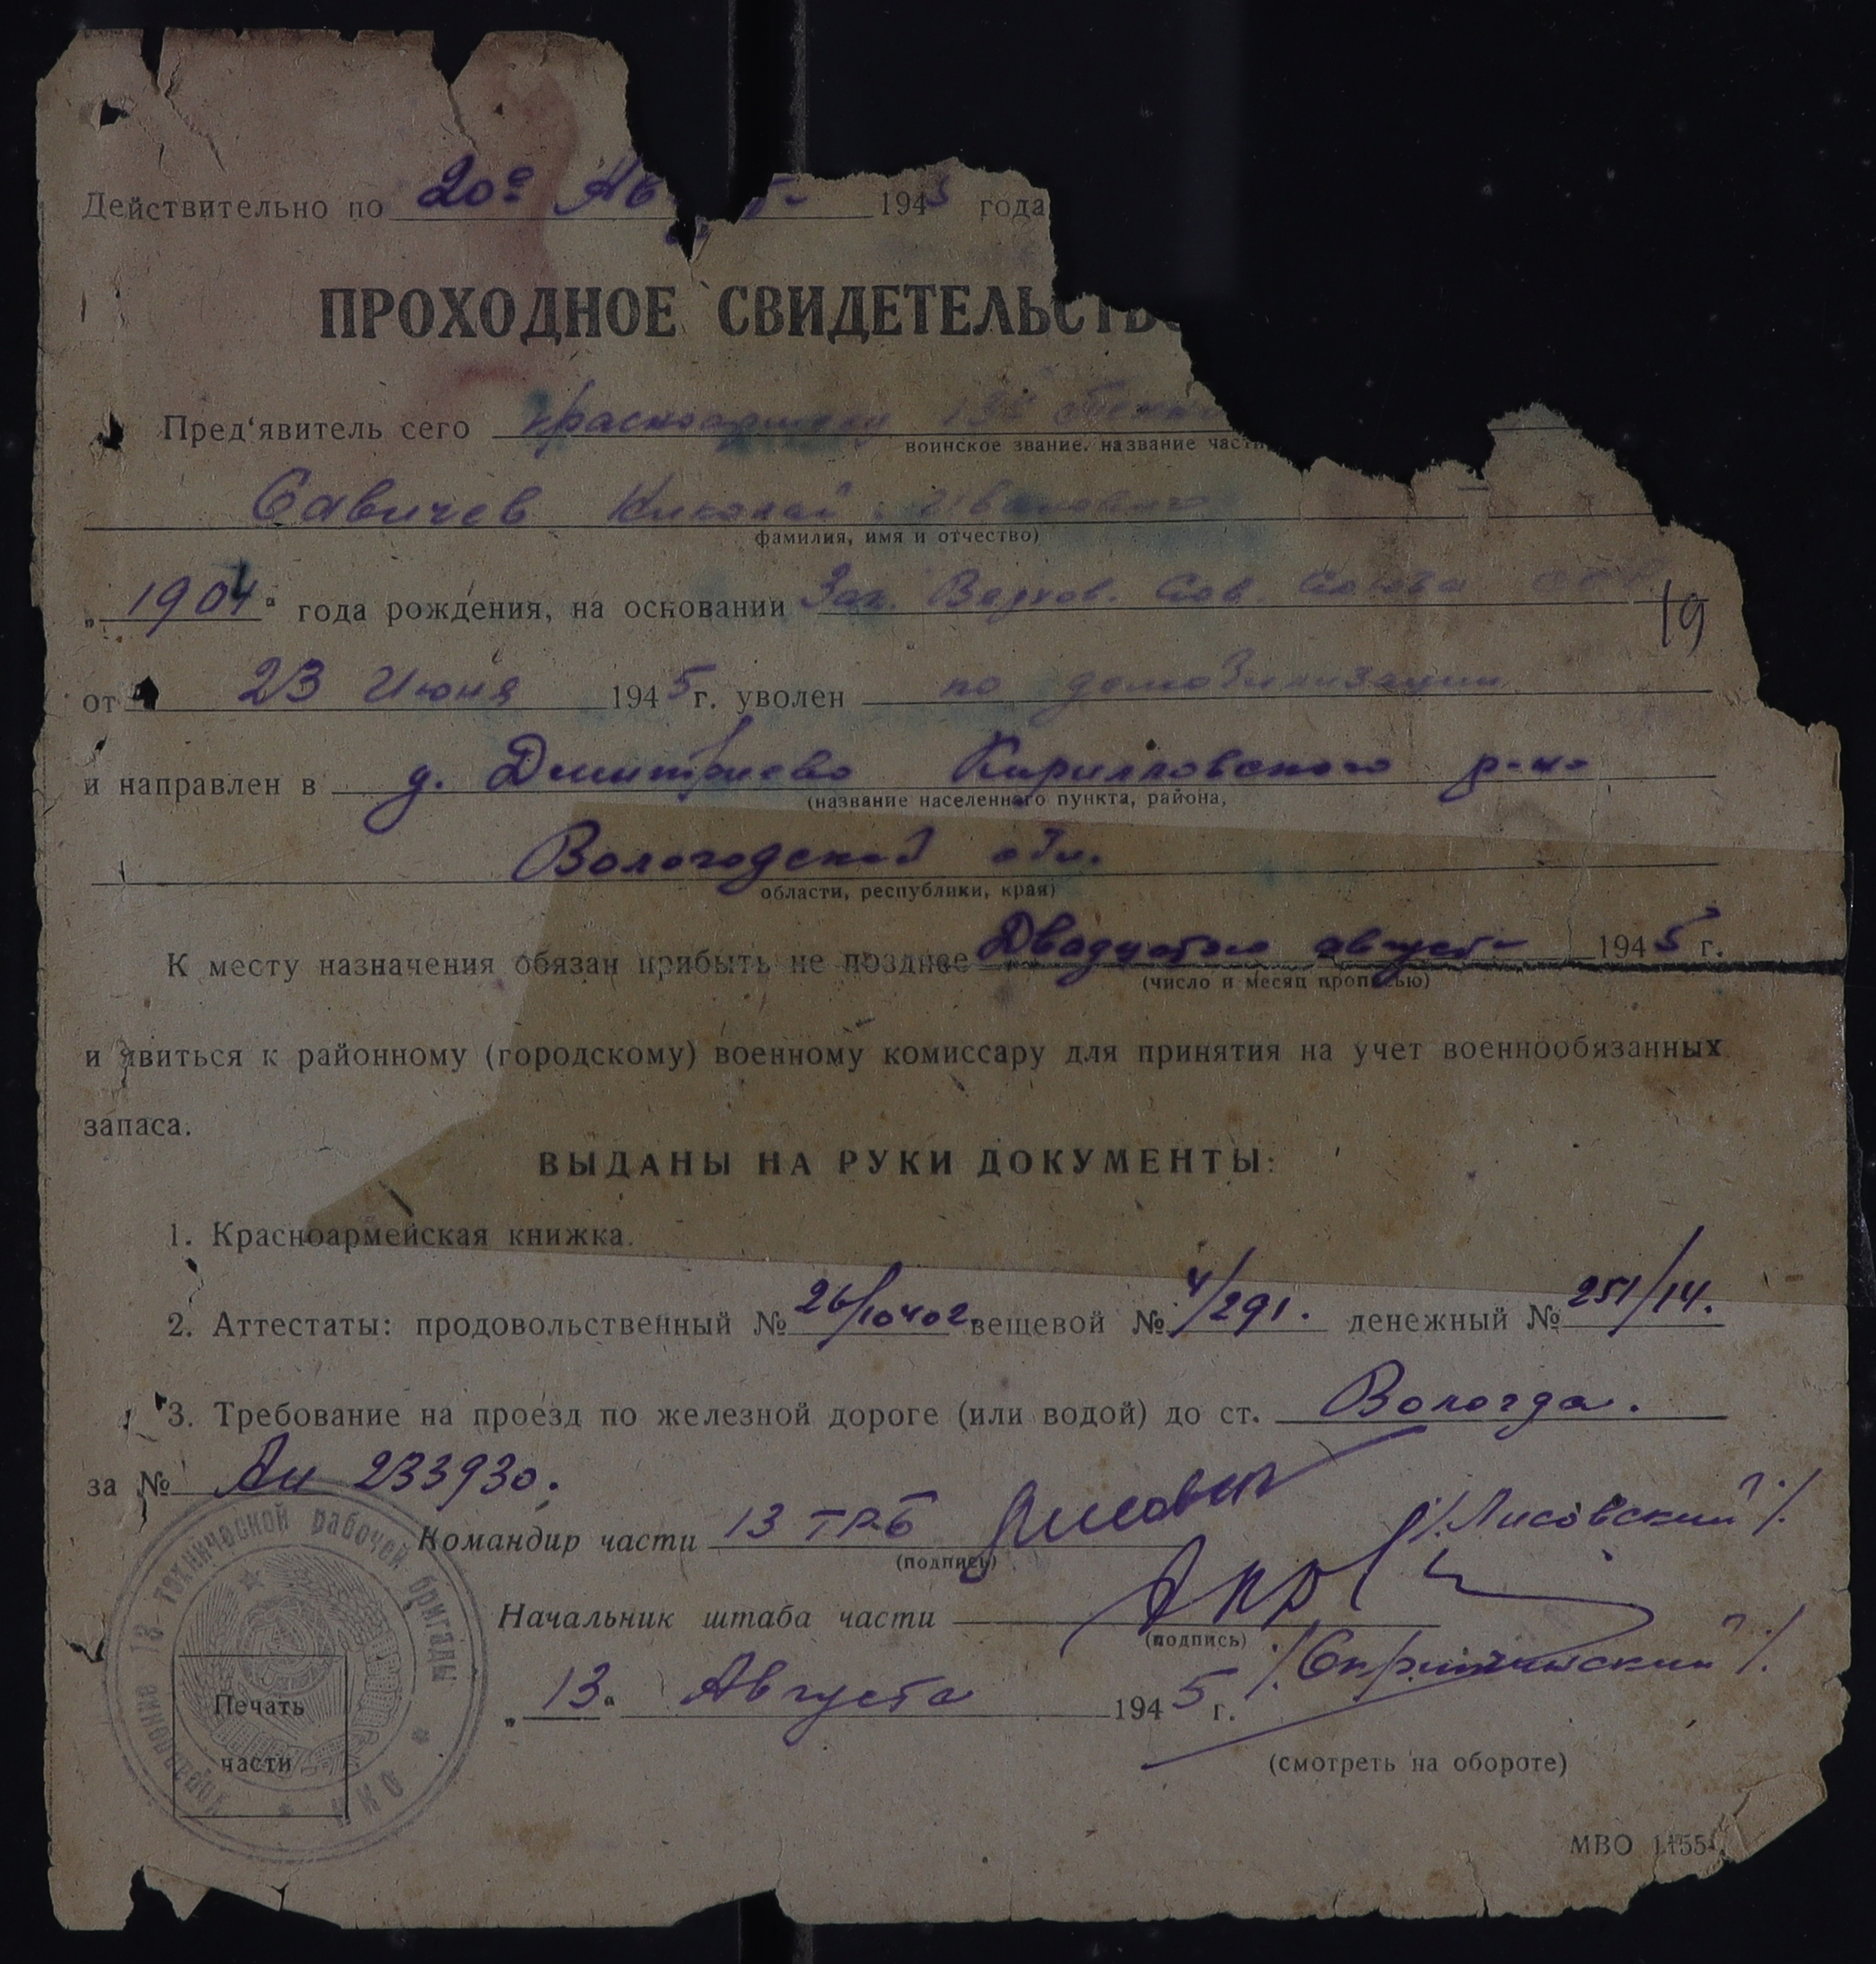 Действительно по 20е 1945 года
ПРОХОДНОЕ СВИДЕТЕЛЬСТВО
Пред'явитель сего красноармеец
воинское звание, название части
Савичев Николай Иванович
фамилия, имя и отчество)
„1904“ года рождения, на основании Зак. Верхов. Сов. Союза ССР
19
от 23 Июня 1945 г. уволен по демобилизации
и направлен в д. Дмитриево Кирилловского р-на
(название населенного пункта, района,
Вологодской обл.
области, республики, края)
К месту назначения обязан прибыть не позднее Двадцатого августа 1945 г.
(число и месяц прописью)
и явиться к районному (городскому) военному комиссару для принятия на учет военнообязанных
запаса.
ВЫДАНЫ НА РУКИ ДОКУМЕНТЫ:
1. Красноармейская книжка.
2. Аттестаты: продовольственный № вещевой № 4/291. денежный № 251/14.
3. Требование на проезд по железной дороге (или водой) до ст. Вологда.
за № Аи 233930.
Командир части 13 ТРБ /Лисовский/
(подпись)
Начальник штаба части
(подпись)
„13“ Августа 1945 г.
(смотреть на обороте)
Печать
части
технической рабочей бригады
МВО